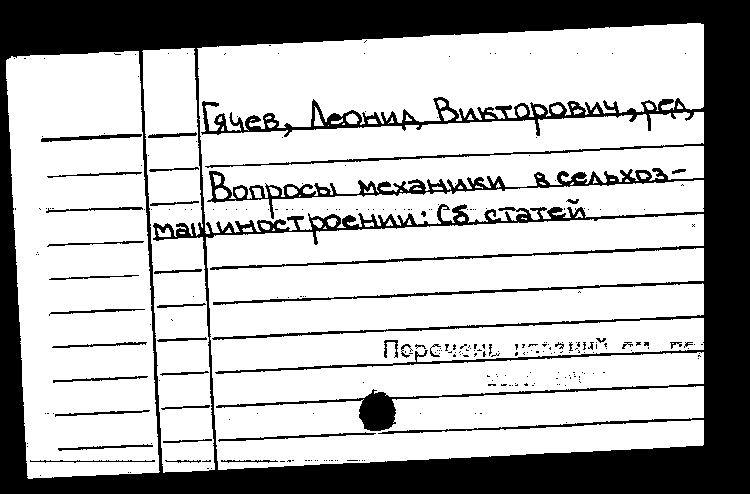 Гячев, Леонид Викторович, ред,
Вопросы механики в сельхоз-
машиностроении: Сб. статей
Перечень изданий см.